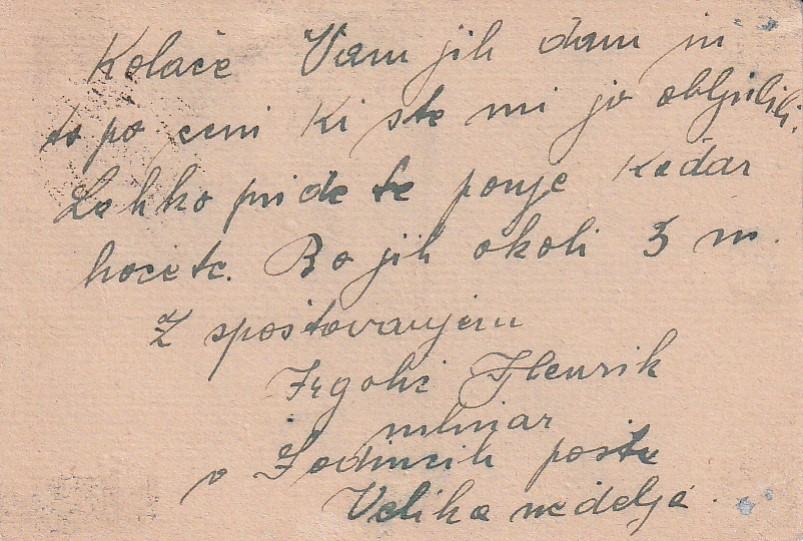 Kolače Vam jih dam in
to po ceni ki ste mi jo obljubili.
Lahko pridete ponje kadar
hočete. Bo jih okoli 3 m.
Z spoštovanjem
Frgolič Henrik
mlinar
v Žodincih pošta
Velika nedelja.